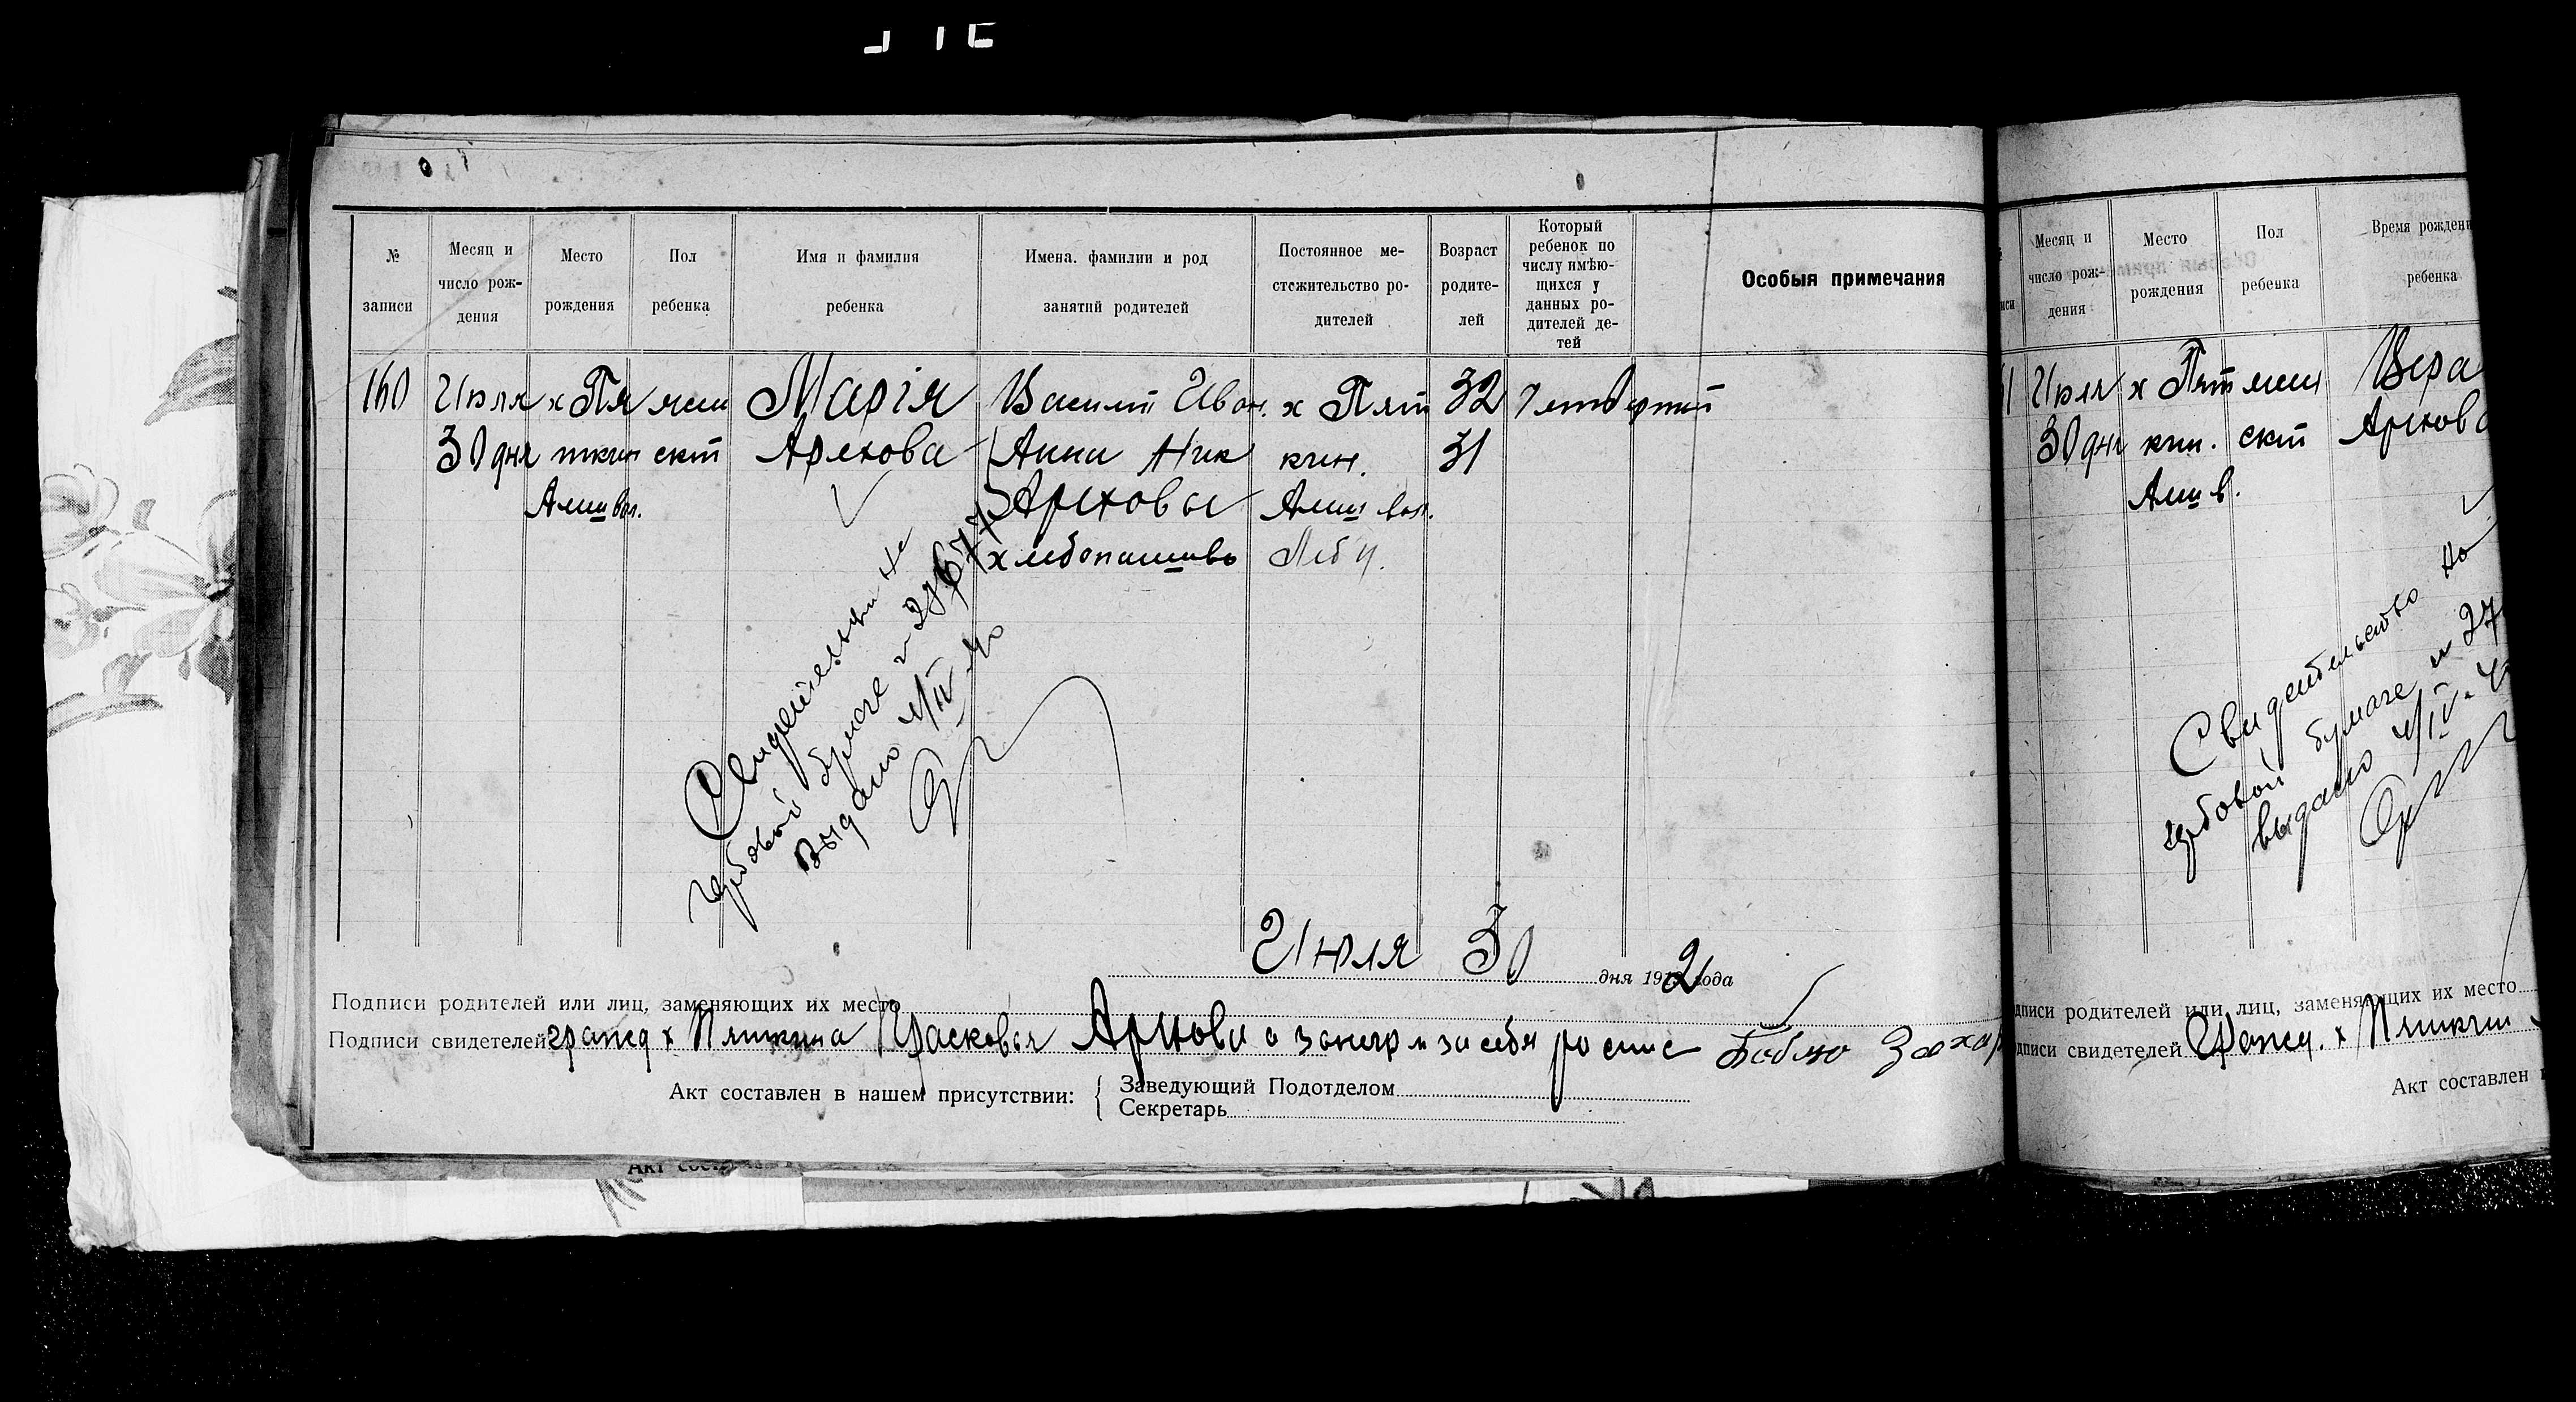 № записи
Месяц и число рождения
Место рождения
Пол ребенка
Имя и фамилия ребенка
Имена. фамилии и род занятий родителей
Постоянное местожительство родителей
Возраст родителей
Который ребенок по числу имѣющихся у данных родителей детей
Особыя примечания
160 Июля х Пя женс Марія Василий Иван. х Пят 32 Четвертый
30 дня ткин ский Арехова Анна Ник кин. 31
Амш вол. Ареховы Амш вол.
хлебопашовь Леб у.
гербовой бумаге
Выдано
Июля 30 дня 192 года
Подписи родителей или лиц, заменяющих их место
Подписи свидетелей гражд х Пяткина Прасковья Арехова а за негр и за себя роспис Захар
Акт составлен в нашем присутствии:
Заведующий Подотделом
Секретарь
Месяц и число рождения
Место рождения
Пол ребенка
Время рождени
ребенка
Июля х Пят женс Вера
30 дня кин. ский Арехова
Амш в.
Свидетельство на
гербовой бумаге
выдано
дписи родителей или лиц, заменяющих их место
дписи свидетелей Гражд. х Пяткин
Акт составлен